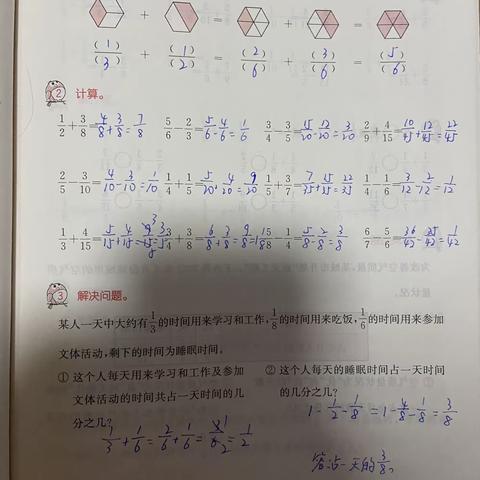 + = + =
(1)/(3) + (1)/(2) = (2)/(6) + (3)/(6) = (5)/(6)
2 计算。
1/2+3/8=4/8+3/8=7/8 5/6-2/3=5/6-4/6=1/6 3/4-3/5=15/20-12/20=3/20 2/9+4/15=10/45+12/45=22/45
2/5-3/10=4/10-3/10=1/10 1/4+1/5=5/20+4/20=9/20 1/5+3/7=7/35+15/35=22/35 1/4-1/6=3/12-2/12=1/12
1/3+4/15=5/15+4/15=9/15=3/5 3/4+3/8=6/8+3/8=9/8=1 1/8 5/8-1/4=5/8-2/8=3/8 6/7-5/6=36/42-35/42=1/42
3 解决问题。
某人一天中大约有1/3的时间用来学习和工作,1/8的时间用来吃饭,1/6的时间用来参加
文体活动,剩下的时间为睡眠时间。
① 这个人每天用来学习和工作及参加
文体活动的时间共占一天时间的几
分之几?
1/3+1/6=2/6+1/6=3/6=1/2
② 这个人每天的睡眠时间占一天时间
的几分之几?
1-1/2-1/8=1-4/8-1/8=3/8
答:占一天的3/8。